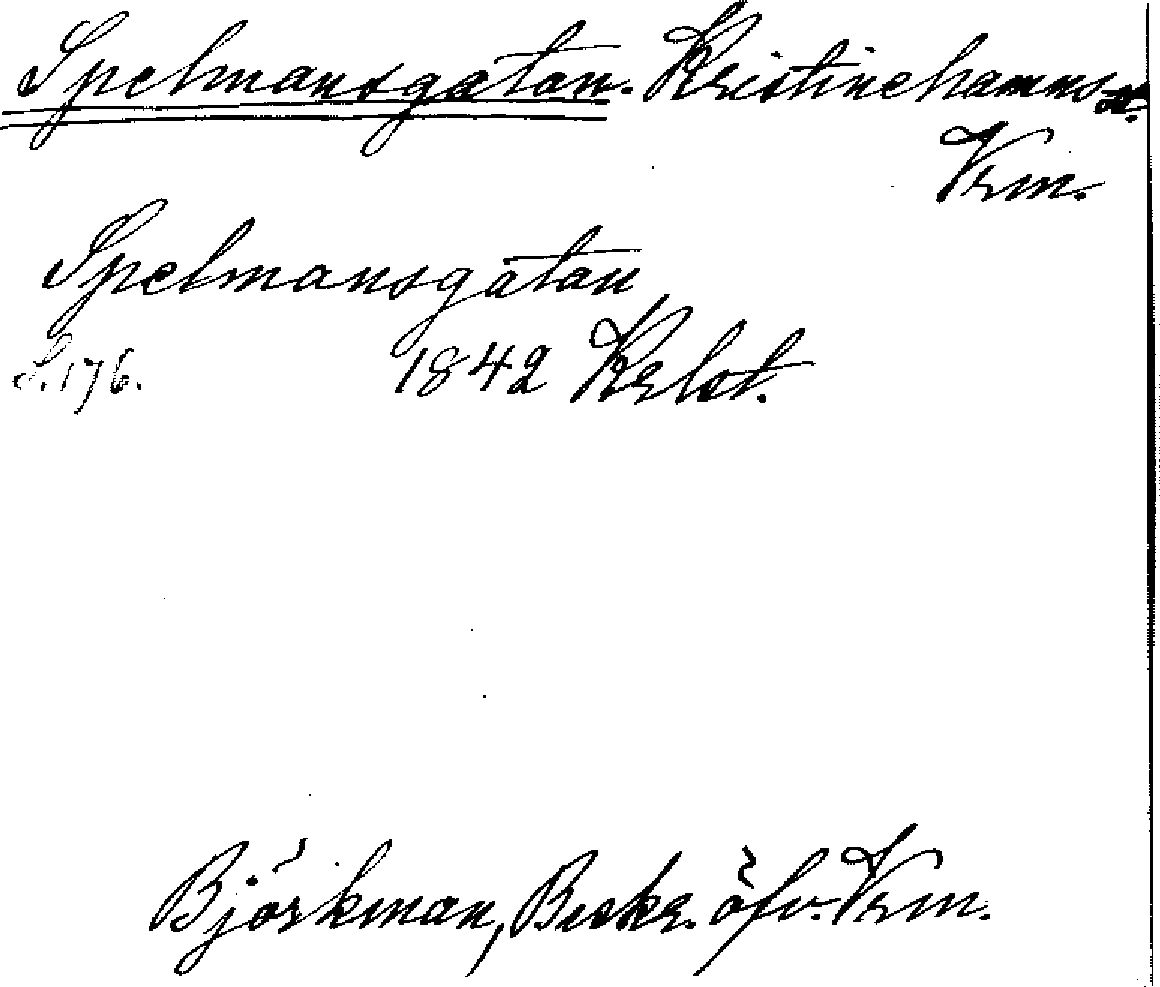 Spelmansgatan. Kristinehamns st.
Vrm.
Spelmansgatan
S. 176. 1842 Krlot.
Björkman, Beskr. öfv. Vrm.